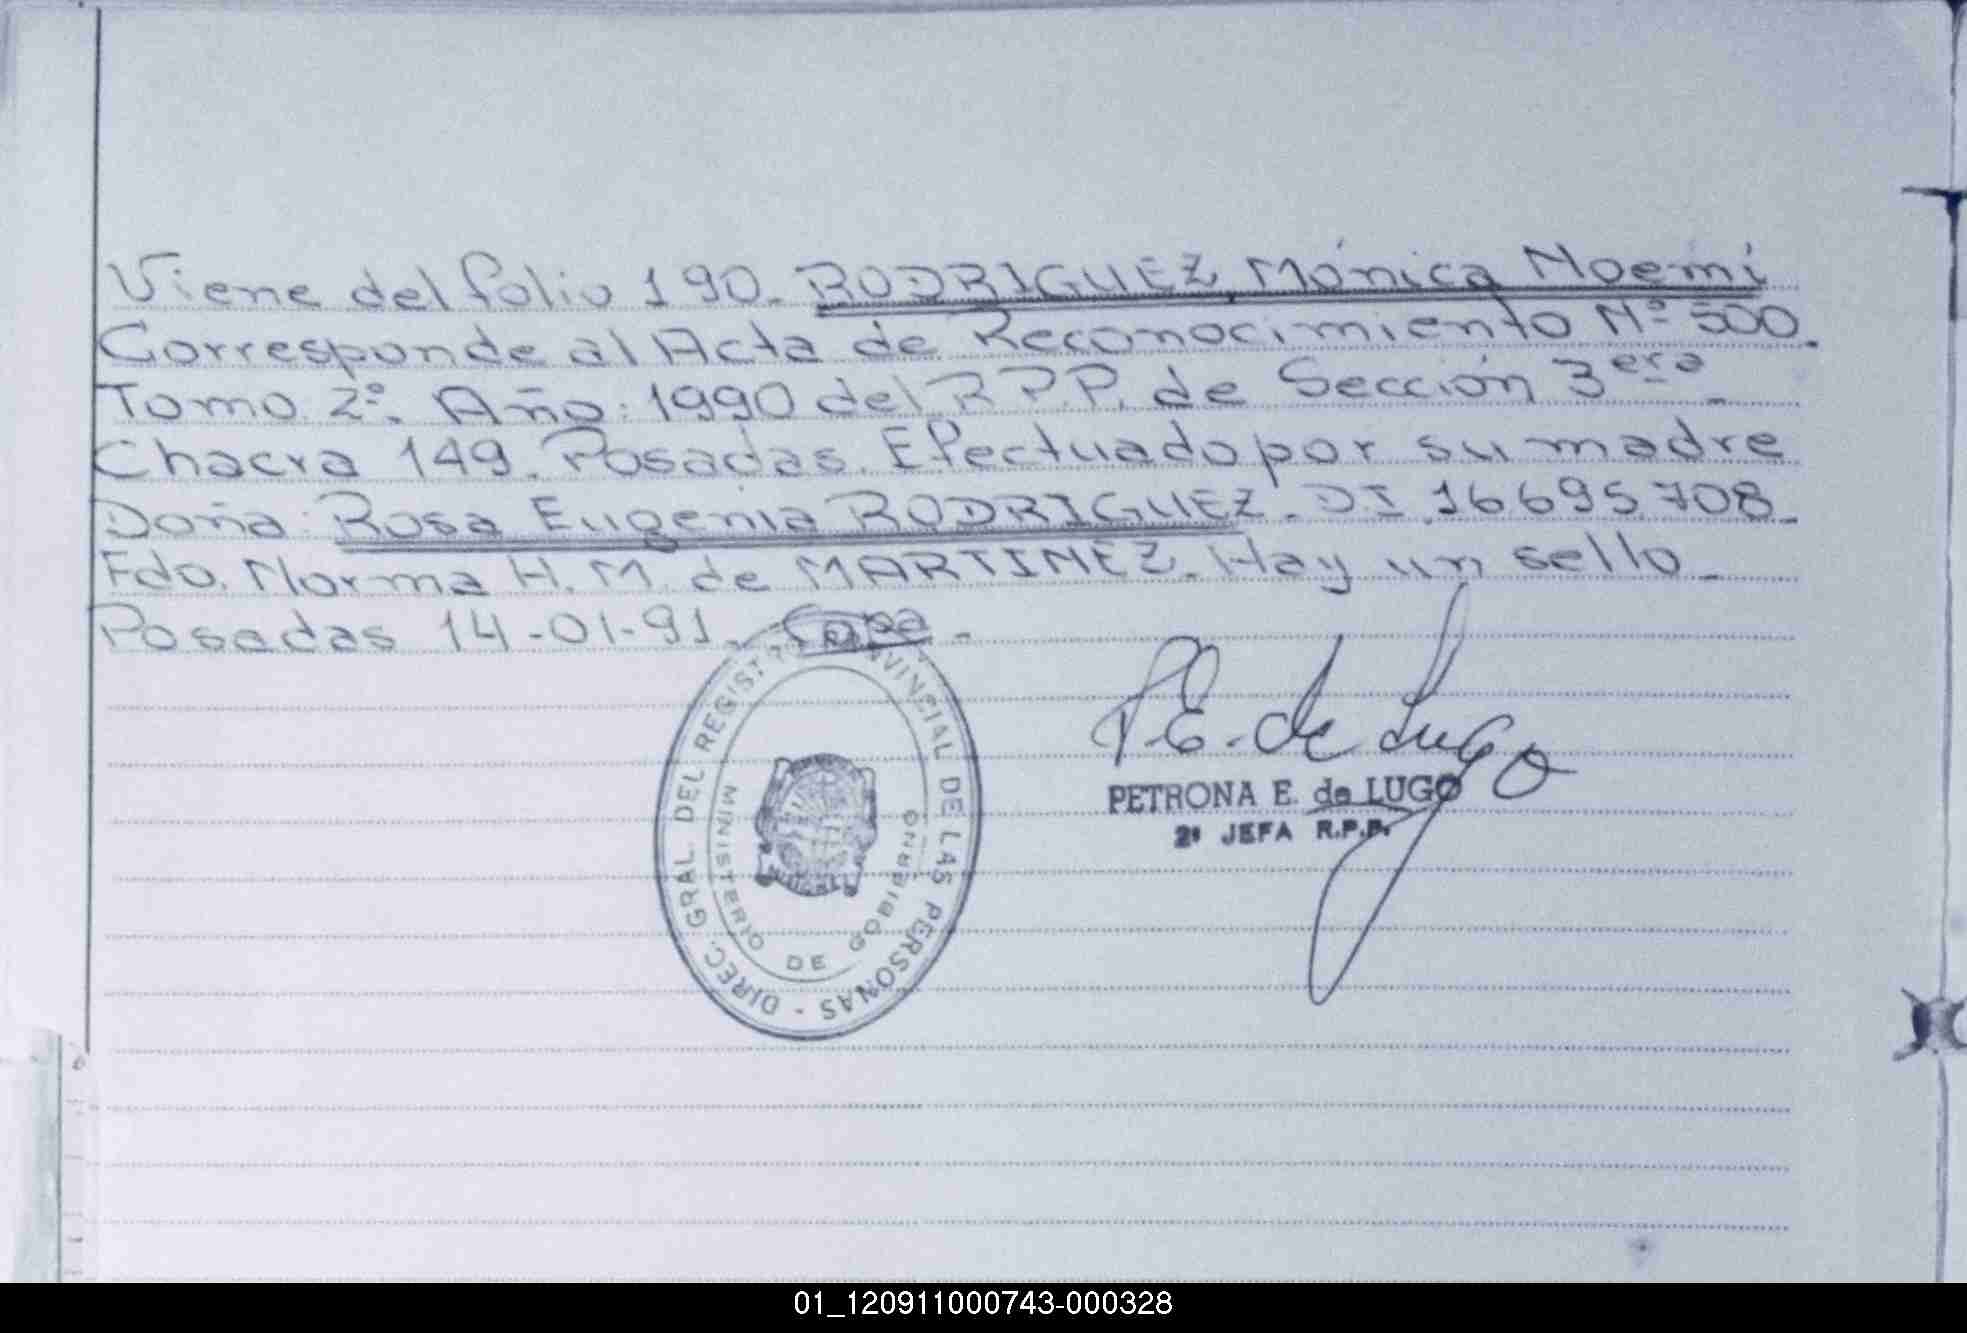 Viene del folio 190. RODRIGUEZ, Mónica Noemí
Corresponde al Acta de Reconocimiento Nº 500.
Tomo 2º. Año: 1990 del R.P.P. de Sección 3era -
Chacra 149. Posadas. Efectuado por su madre
Doña: Rosa Eugenia RODRIGUEZ. DI 16695708.
Fdo. Norma H. M. de MARTINEZ. Hay un sello -
Posadas 14-01-91.
P.E. de Lugo
PETRONA E. de LUGO
2º JEFA R.P.P.
DIREC. GRAL. DEL REGIST. PROVINCIAL DE LAS PERSONAS -
MINISTERIO DE GOBIERNO
01_120911000743-000328